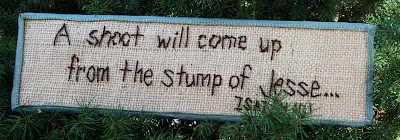 A shoot will come up
from the stump of Jesse...